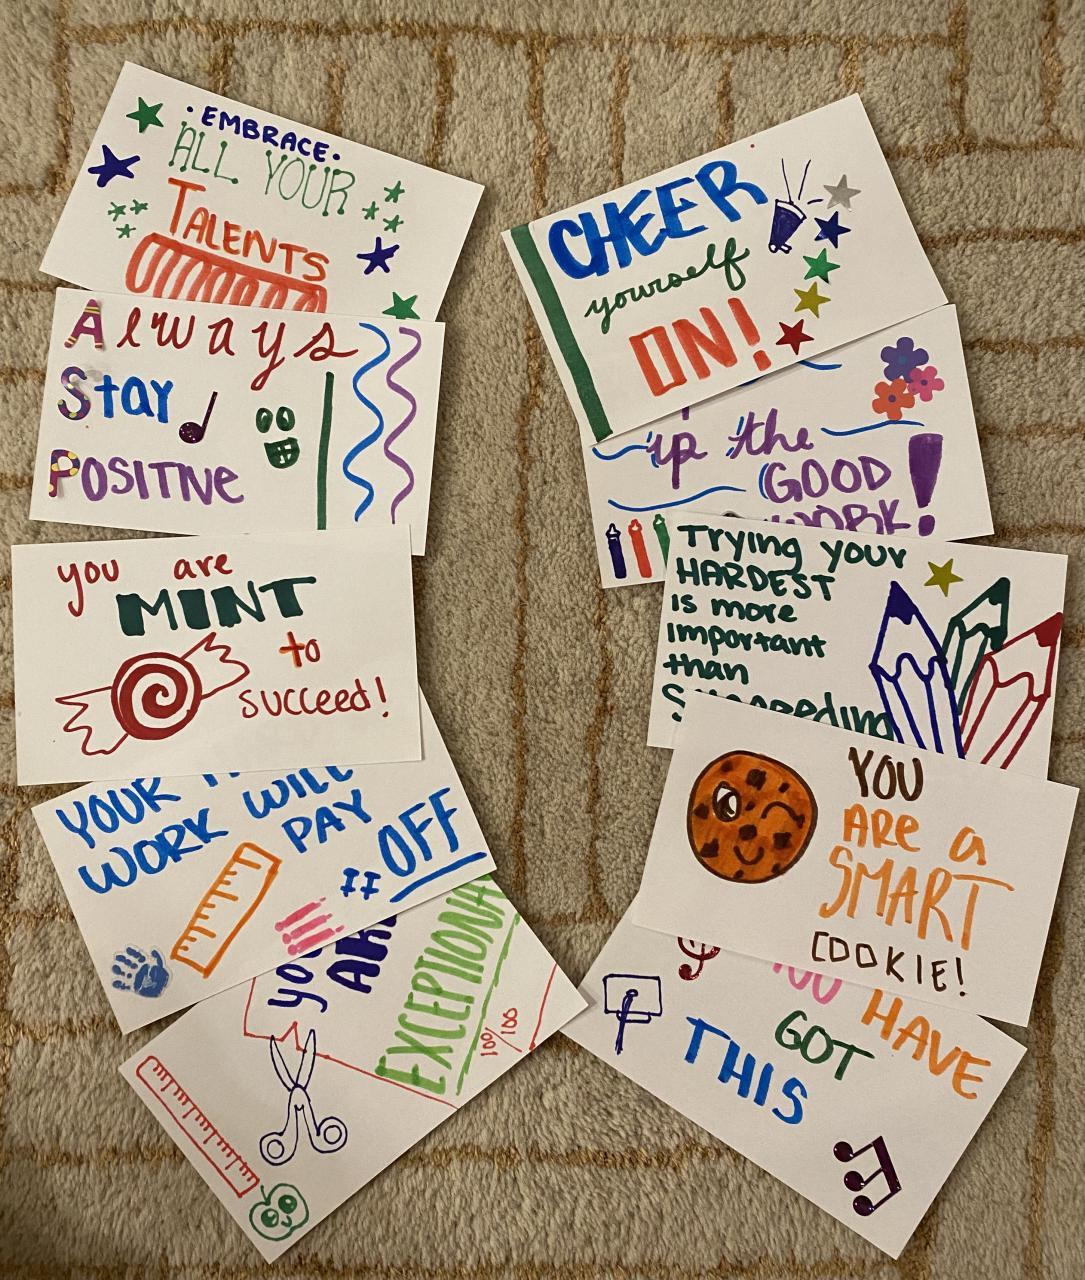 ·EMBRACE·
ALL YOUR
TALENTS
Always
Stay
POSITIVE
you are
MINT
to
succeed!
YOUR
WORK WILL
PAY
OFF
you
ARE
EXCEPTIONAL
100/100
CHEER
yourself
ON!
up the
GOOD
WORK!
Trying your
HARDEST
is more
important
than
Succeeding
YOU
ARE a
SMART
COOKIE!
YOU HAVE
GOT
THIS